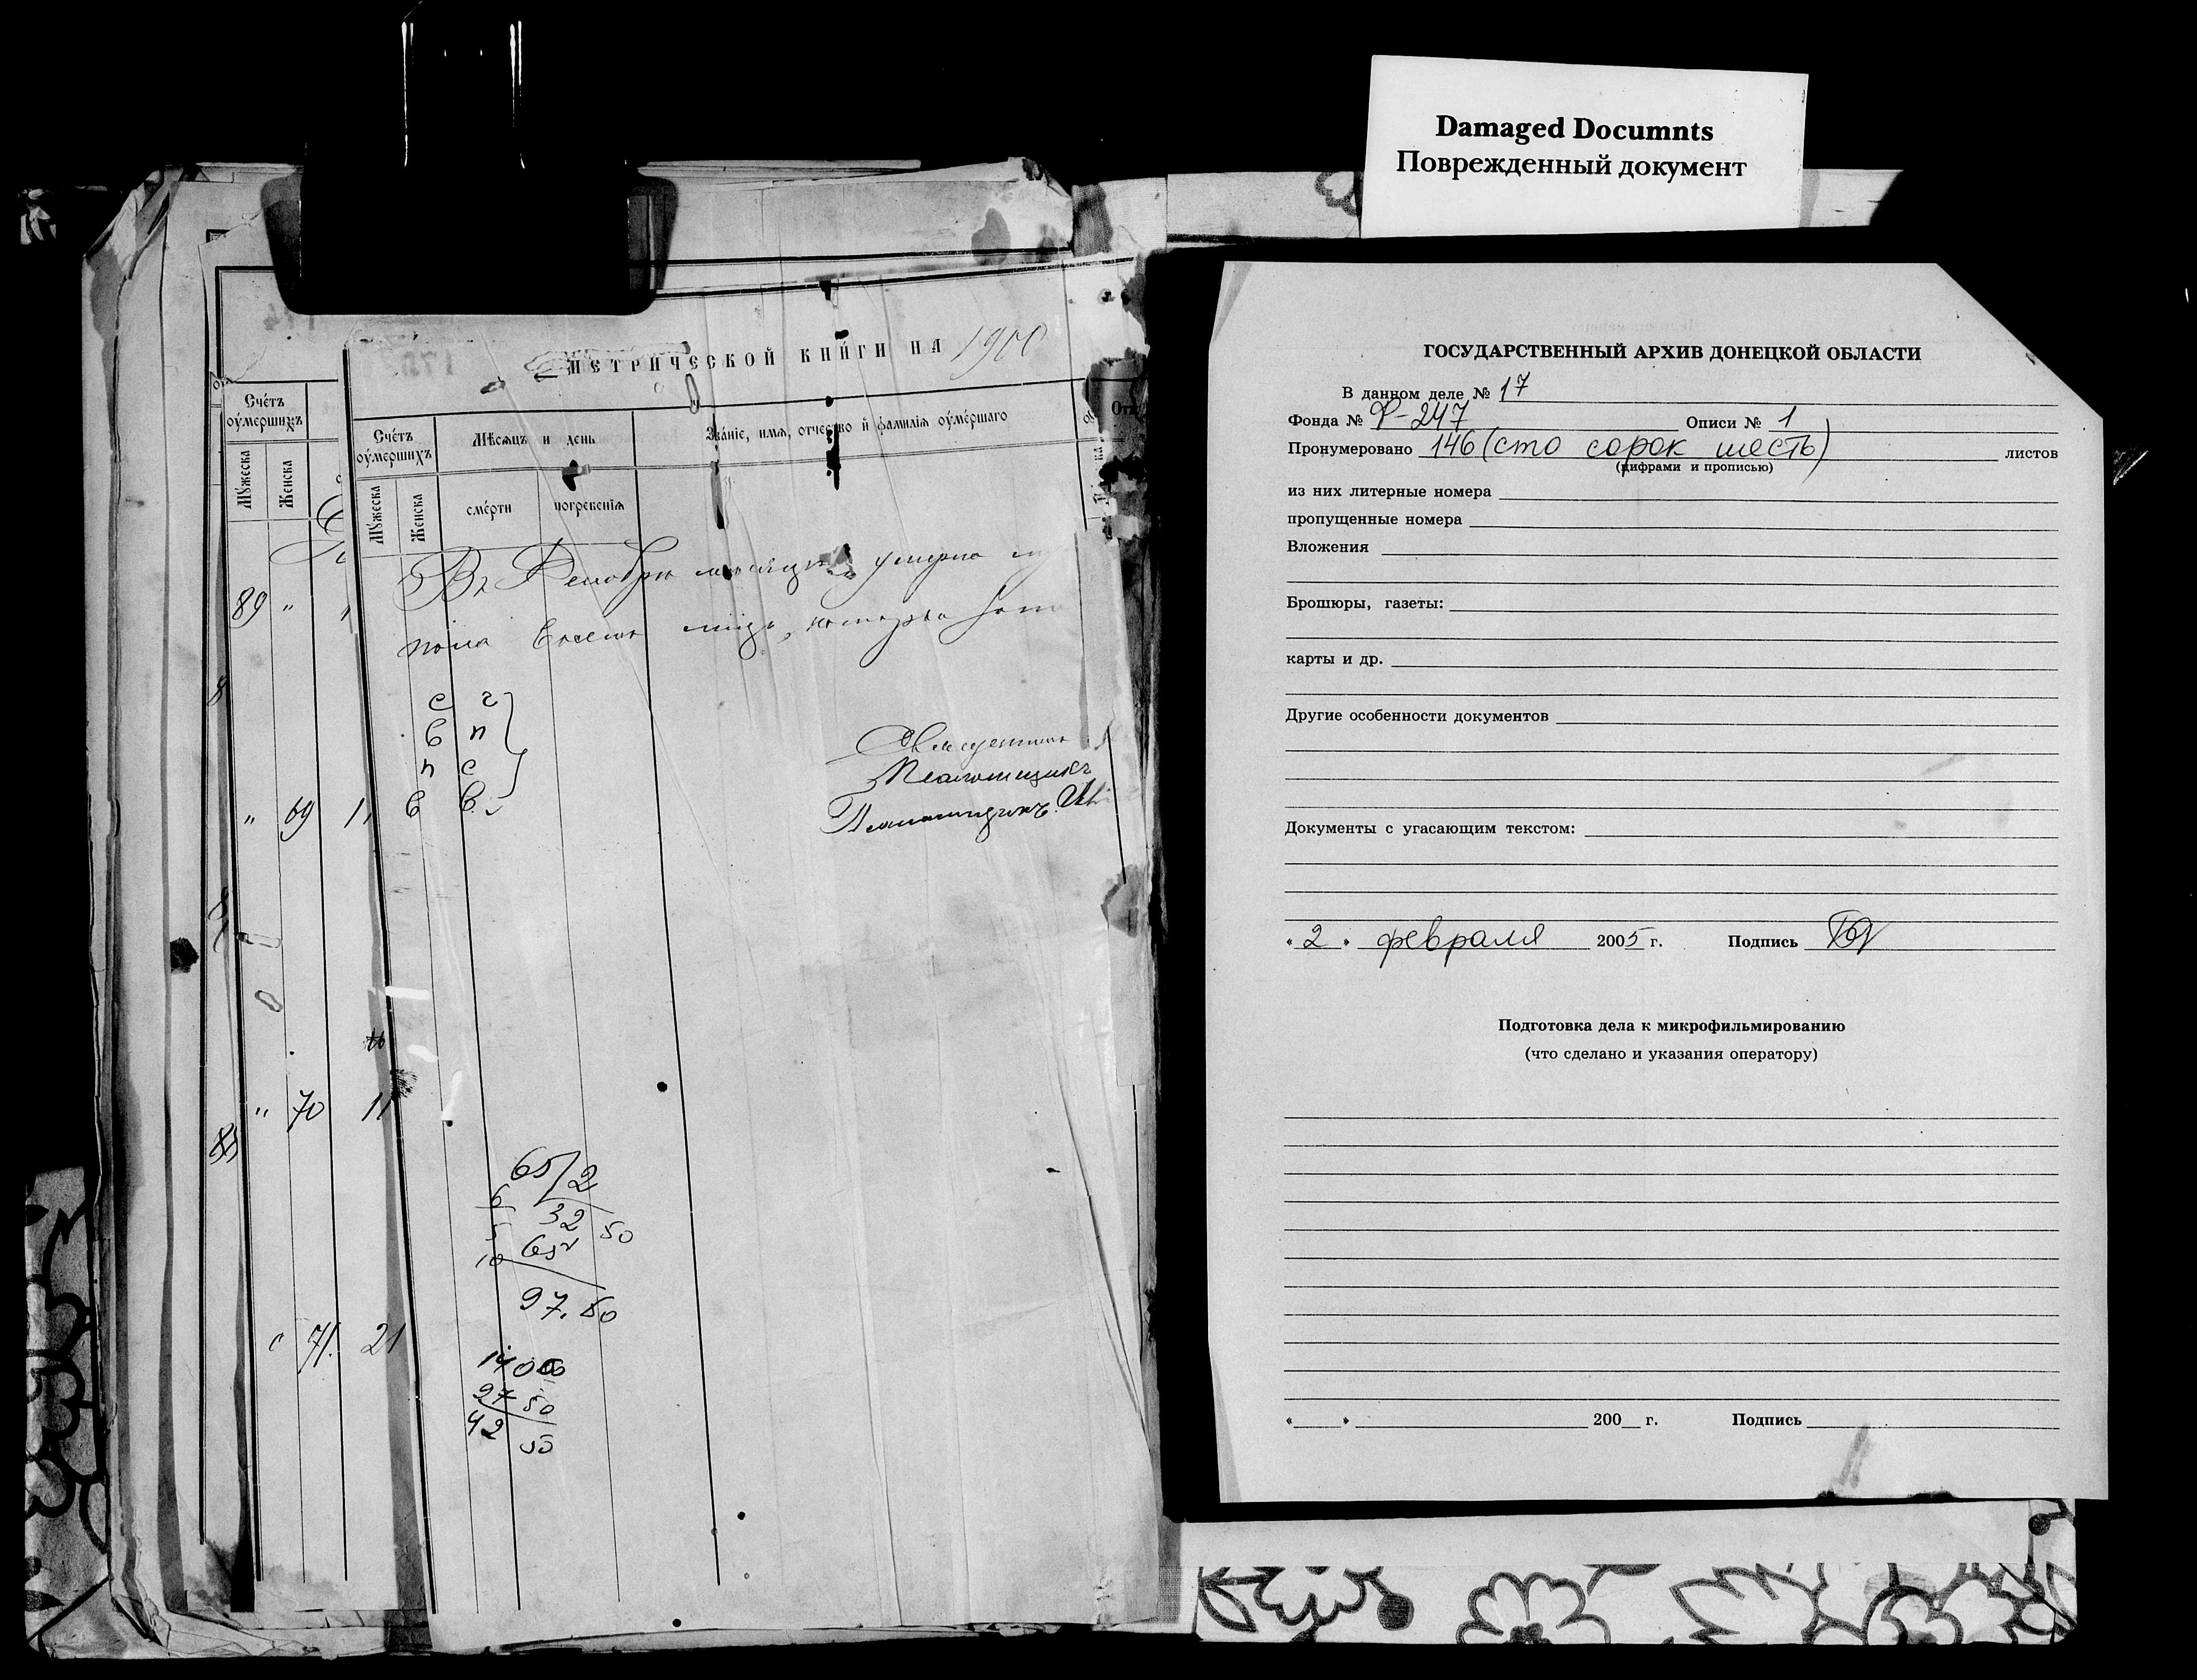 Damaged Documnts
Поврежденный документ
МЕТРИЧЕСКОЙ КНИГИ НА 1900
Счéтъ оумéршихъ
Мужеска
Женска
Счéтъ оумéршихъ
Мѣсяцъ и день
Звáнїе, имя, отчество и фамилїя оумéршаго
Мужеска
Женска
смéрти
погребенїя
Въ Декабрѣ мѣсяцѣ умерло
пола восемь лицъ,
89 "
" 69 11
" 70 11
71. 21
с г
в п
п с
в в
Псаломщикъ
Псаломщикъ
65/2
32 50
65
97.50
14 00
27 50
42 50
ГОСУДАРСТВЕННЫЙ АРХИВ ДОНЕЦКОЙ ОБЛАСТИ
В данном деле № 17
Фонда № Ф-247 Описи № 1
Пронумеровано 146 (сто сорок шесть) листов
(цифрами и прописью)
из них литерные номера
пропущенные номера
Вложения
Брошюры, газеты:
карты и др.
Другие особенности документов
Документы с угасающим текстом:
« 2 » февраля 2005 г. Подпись
Подготовка дела к микрофильмированию
(что сделано и указания оператору)
« » 200 г. Подпись